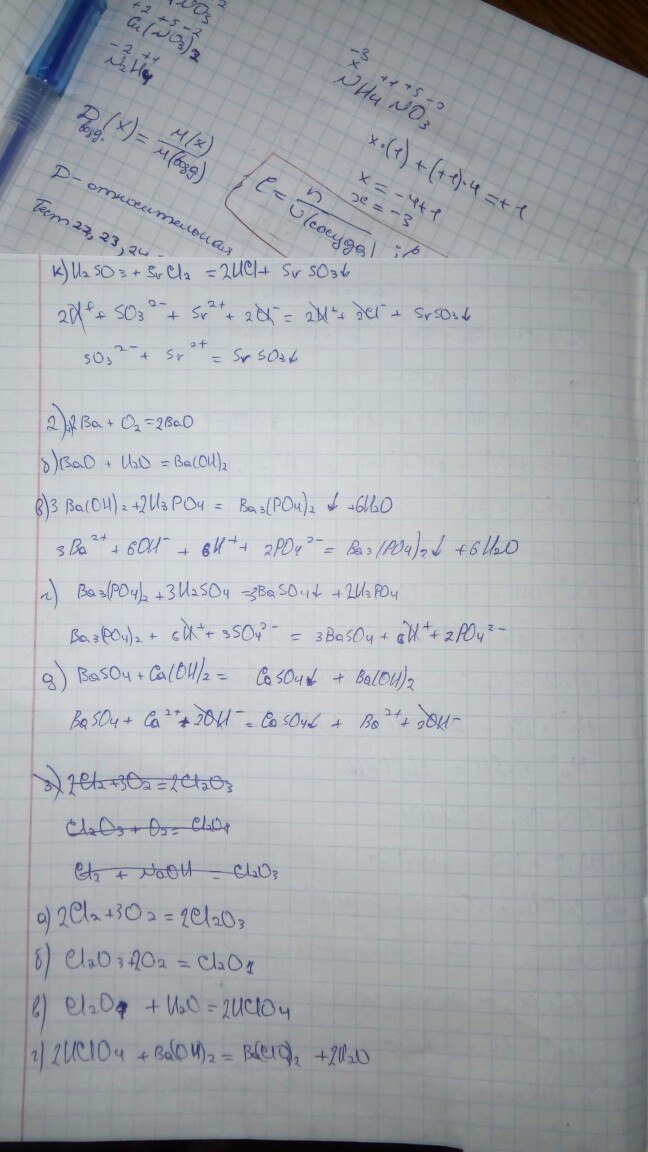 NO₃
+2 +5 -2
Cu(NO₃)₂
-2 +1
N₂H₄
-3
x +1 +5 -2
NH₄NO₃
x·(1) + (+1)·4 = +1
x = -4+1
x = -3
D возд. (x) = M(x) / M(возд)
D - относительная
Тест 22, 23, 24
C = n / V(сосуда)
к) H₂SO₃ + SrCl₂ = 2HCl + SrSO₃↓
2H⁺ + SO₃²⁻ + Sr²⁺ + 2Cl⁻ = 2H⁺ + 2Cl⁻ + SrSO₃↓
SO₃²⁻ + Sr²⁺ = SrSO₃↓
2) 2Ba + O₂ = 2BaO
б) BaO + H₂O = Ba(OH)₂
в) 3Ba(OH)₂ + 2H₃PO₄ = Ba₃(PO₄)₂↓ + 6H₂O
3Ba²⁺ + 6OH⁻ + 6H⁺ + 2PO₄³⁻ = Ba₃(PO₄)₂↓ + 6H₂O
г) Ba₃(PO₄)₂ + 3H₂SO₄ = 3BaSO₄↓ + 2H₃PO₄
Ba₃(PO₄)₂ + 6H⁺ + 3SO₄²⁻ = 3BaSO₄ + 6H⁺ + 2PO₄³⁻
д) BaSO₄ + Ca(OH)₂ = CaSO₄↓ + Ba(OH)₂
BaSO₄ + Ca²⁺ + 2OH⁻ = CaSO₄↓ + Ba²⁺ + 2OH⁻
3) 2Cl₂ + 3O₂ = 2Cl₂O₃
Cl₂O₃ + O₂ = Cl₂O₇
Cl₂ + NaOH = Cl₂O₃
а) 2Cl₂ + 3O₂ = 2Cl₂O₃
б) Cl₂O₃ + 2O₂ = Cl₂O₇
в) Cl₂O₇ + H₂O = 2HClO₄
г) 2HClO₄ + Ba(OH)₂ = Ba(ClO)₂ + 2H₂O